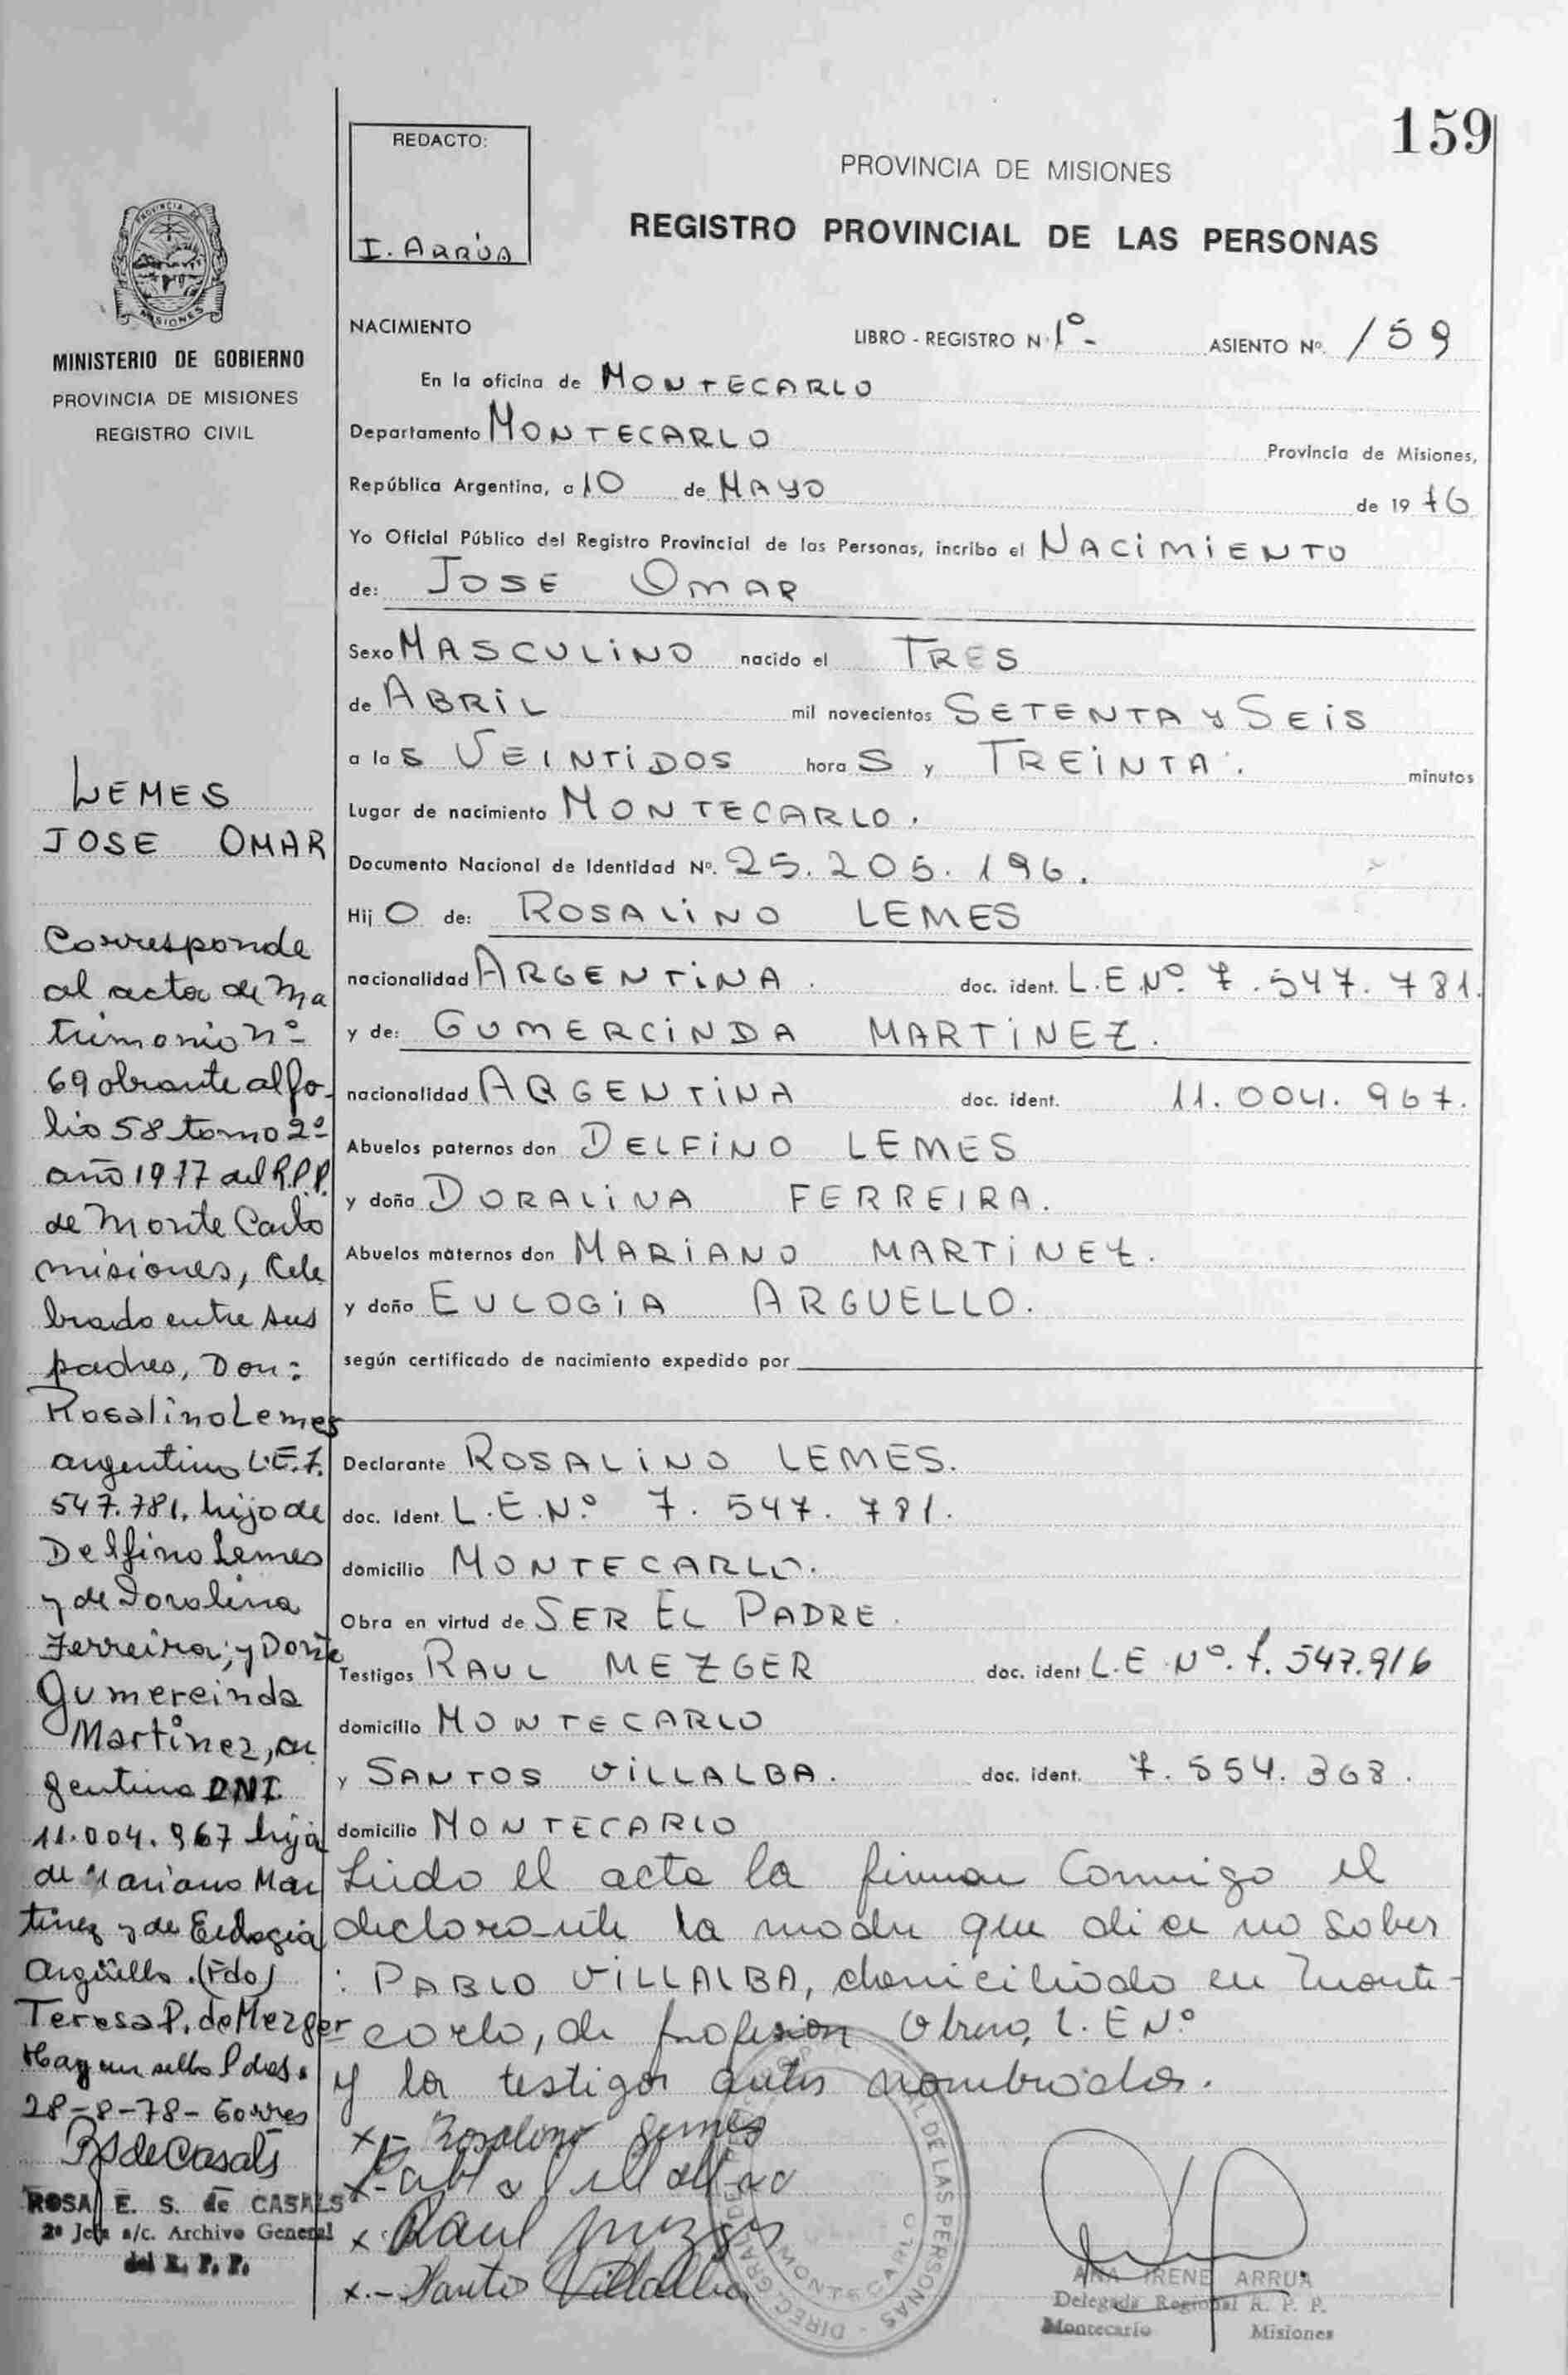 159
REDACTO:
I. ARRÚA
PROVINCIA DE MISIONES
REGISTRO PROVINCIAL DE LAS PERSONAS
PROVINCIA DE
MISIONES
MINISTERIO DE GOBIERNO
PROVINCIA DE MISIONES
REGISTRO CIVIL
LEMES
JOSE OMAR
Corresponde
al acta de Ma
trimonio nº
69 obrante al fo-
lio 58 tomo 2º
año 1977 del R.P.P.
de Monte Carlo
misiones, Cele
brado entre sus
padres, Don:
Rosalino Lemes
argentino L.E. 7.
547.781. hijo de
Delfino Lemes
y de Doralina
Ferreira; y Doña
Gumercinda
Martinez, ar
gentina DNI.
11.004.967 hija
de Mariano Mar
tinez y de Eulogia
Argüello. (Fdo)
Teresa P. de Mezger
Hay un sello Pdas.
28-8-78- Torres
RSdeCasals
ROSA E. S. de CASALS
2ª Jefa a/c. Archivo General
del R. P. P.
NACIMIENTO LIBRO - REGISTRO Nº 1º- ASIENTO Nº. 159
En la oficina de MONTECARLO
Departamento MONTECARLO Provincia de Misiones,
República Argentina, a 10 de MAYO de 19 76
Yo Oficial Público del Registro Provincial de las Personas, incribo el NACIMIENTO
de: JOSE OMAR
Sexo MASCULINO nacido el TRES
de ABRIL mil novecientos SETENTA Y SEIS
a las VEINTIDOS horas y TREINTA. minutos
Lugar de nacimiento MONTECARLO.
Documento Nacional de Identidad Nº. 25.205.196.
Hijo de: ROSALINO LEMES
nacionalidad ARGENTINA. doc. ident. L.E.Nº. 7.547.781.
y de: GUMERCINDA MARTINEZ.
nacionalidad ARGENTINA doc. ident. 11.004.967.
Abuelos paternos don DELFINO LEMES
y doña DORALINA FERREIRA.
Abuelos maternos don MARIANO MARTINEZ.
y doña EULOGIA ARGUELLO.
según certificado de nacimiento expedido por
Declarante ROSALINO LEMES.
doc. Ident. L.E.N.º 7.547.781.
domicilio MONTECARLO.
Obra en virtud de SER EL PADRE.
Testigos RAUL MEZGER doc. ident L.E Nº. 7.547.916
domicilio MONTECARLO
y SANTOS VILLALBA. doc. ident. 7.554.368.
domicilio MONTECARLO
Leido el acta la firman Conmigo el
declarante la madre que dice no saber
: PABLO VILLALBA, domiciliado en Monte-
carlo, de profesion Obrero, L.E Nº
y los testigos antes nombrados.
x- Rosalino Lemes
x- Pablo Villalba
x. Raul Mezger
x.- Santos Villalba
DE LAS PERSONAS
MONTECARLO
ANA IRENE ARRUA
Delegada Regional R. P. P.
Montecarlo Misiones